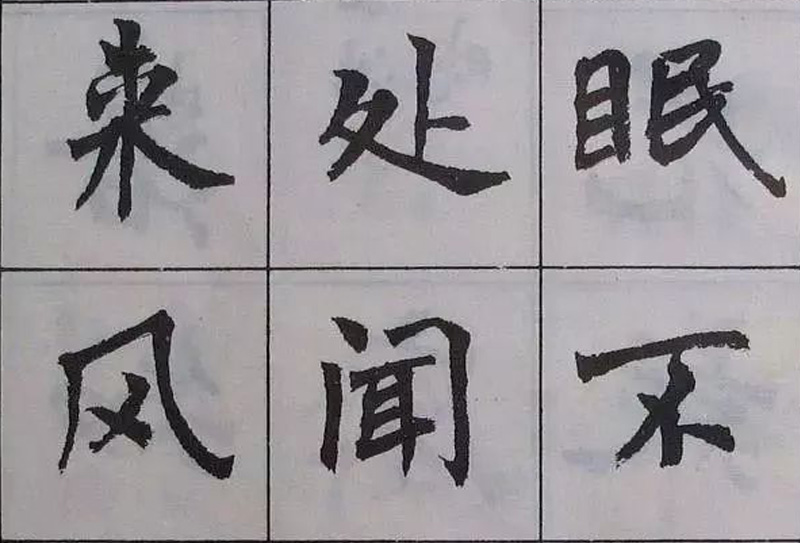 眠不
处闻
来风